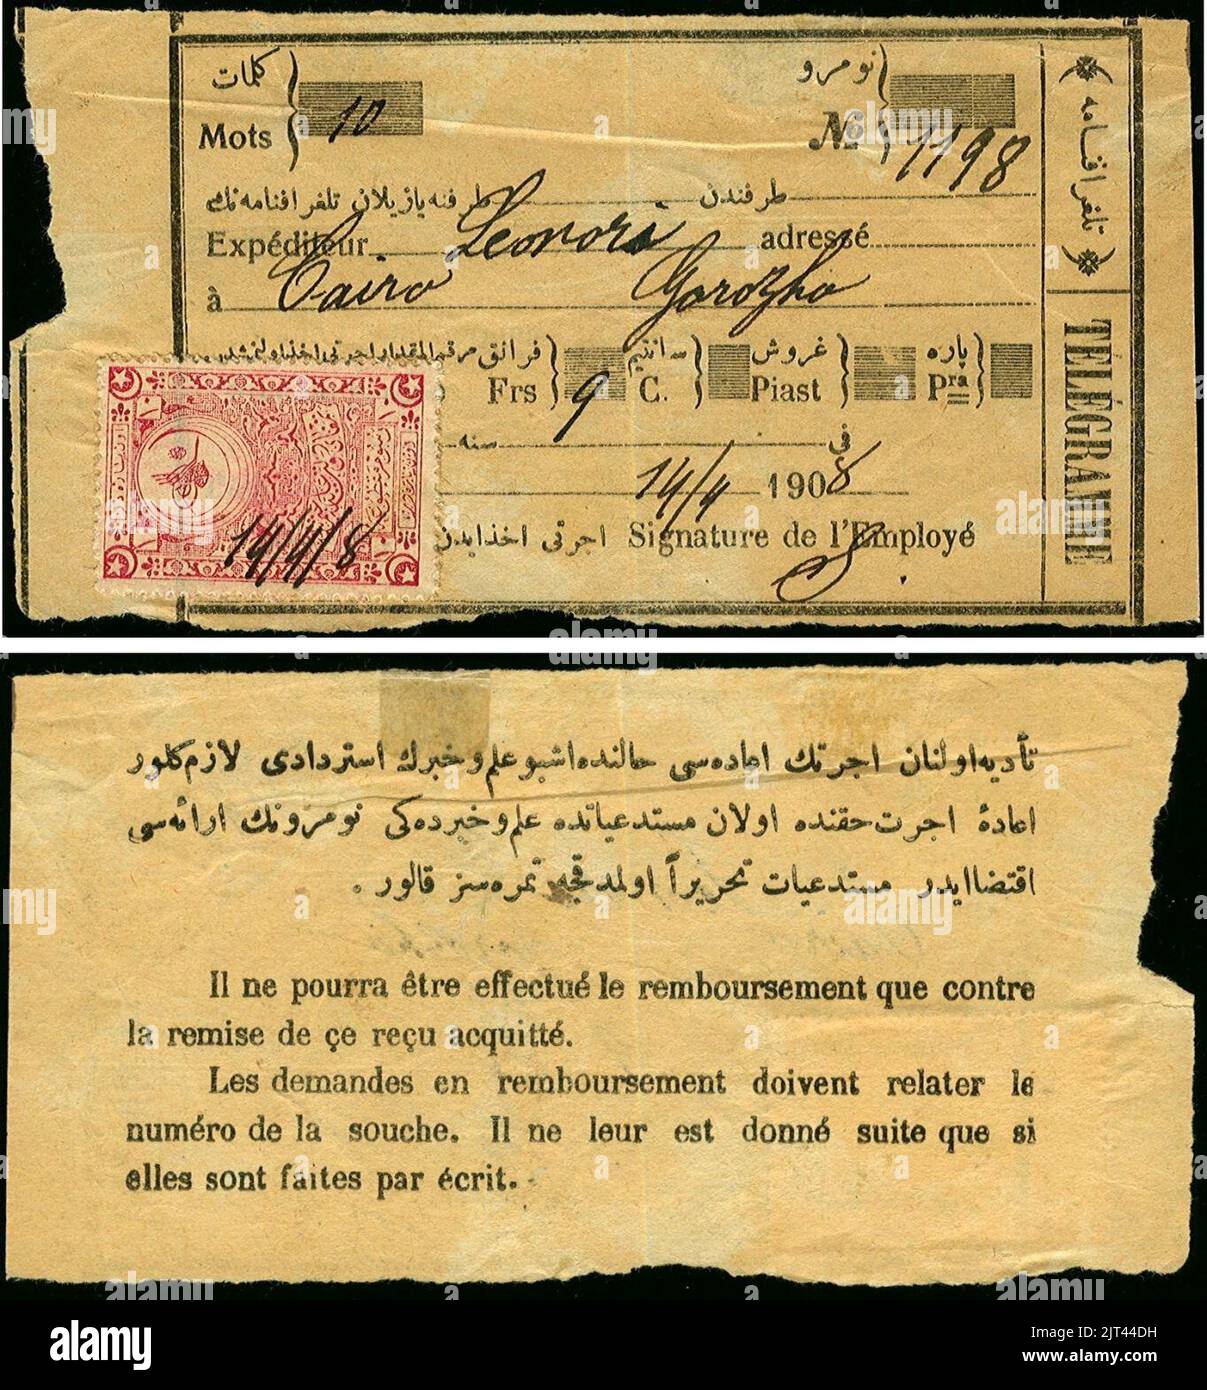 كلمات
Mots 10
نومرو
№ 1198
طرفندن طرفنه يازيلان تلغرافنامه‌نك
Expéditeur Leonori adressé
à Cairo
پاره غروش سانتيم فرانق
Frs 9 C. Piast Pra
فى سنه
14/4 1908
اجرتى اخذ ايدن Signature de l'Employé
تلغرافنامه
TÉLÉGRAMME
14/4/8
تأديه اولنان اجرتك اعاده‌سى حالنده اشبو علم وخبرك استردادى لازم كلور
اعادۀ اجرت حقنده اولان مستدعياتده علم وخبرده‌كى نومرونك ارائه‌سى
اقتضا ايدر مستدعيات تحريراً اولمدقجه ثمره‌سز قالور .
Il ne pourra être effectué le remboursement que contre
la remise de çe reçu acquitté.
Les demandes en remboursement doivent relater le
numéro de la souche. Il ne leur est donné suite que si
elles sont faites par écrit.
alamy
Image ID: 2JT44DH
www.alamy.com